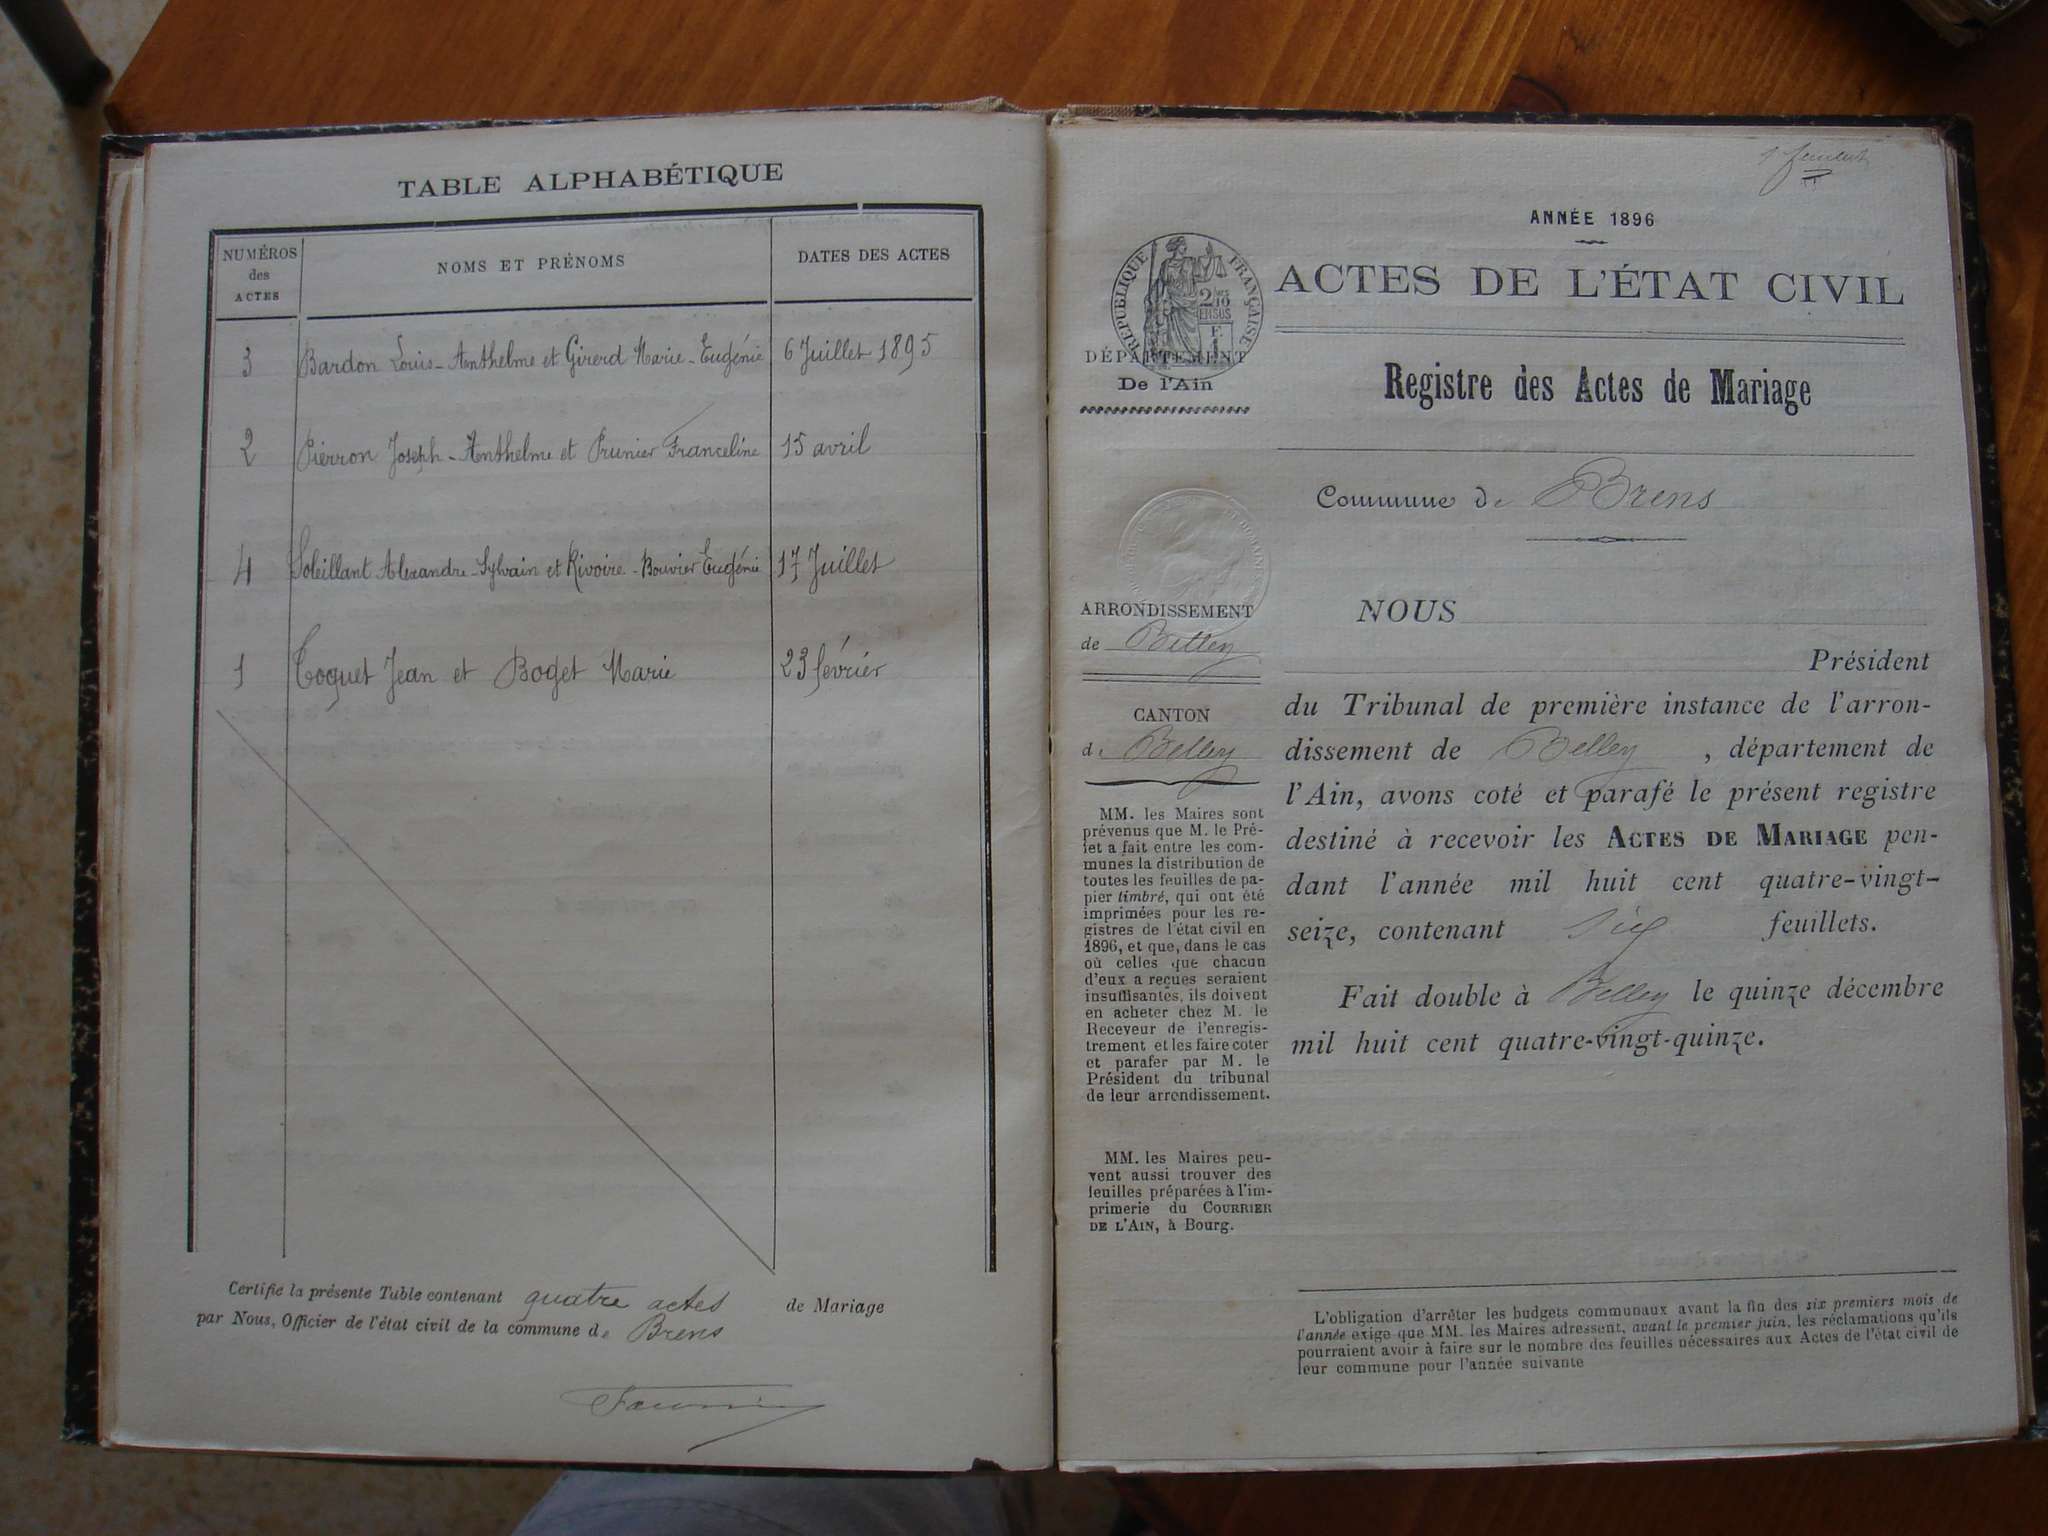 TABLE ALPHABÉTIQUE
NUMÉROS
des
ACTES
NOMS ET PRÉNOMS
DATES DES ACTES
3 Bardon Louis-Anthelme et Girerd Marie-Eugénie 6 Juillet 1895
2 Pierron Joseph-Anthelme et Prunier Franceline 15 avril
4 Soleillant Alexandre-Sylvain et Rivoire-Bouvier Eugénie 17 Juillet
1 Coquet Jean et Boget Marie 23 février
Certifie la présente Table contenant quatre actes de Mariage
par Nous, Officier de l'état civil de la commune de Brens
ANNÉE 1896
RÉPUBLIQUE FRANÇAISE
ACTES DE L'ÉTAT CIVIL
DÉPARTEMENT
De l'Ain
Registre des Actes de Mariage
Commune de Brens
ARRONDISSEMENT
de Belley
CANTON
de Belley
MM. les Maires sont
prévenus que M. le Pré-
fet a fait entre les com-
munes la distribution de
toutes les feuilles de pa-
pier timbré, qui ont été
imprimées pour les re-
gistres de l'état civil en
1896, et que, dans le cas
où celles que chacun
d'eux a reçues seraient
insuffisantes, ils doivent
en acheter chez M. le
Receveur de l'enregis-
trement et les faire coter
et parafer par M. le
Président du tribunal
de leur arrondissement.
MM. les Maires peu-
vent aussi trouver des
feuilles préparées à l'im-
primerie du COURRIER
DE L'AIN, à Bourg.
NOUS
Président
du Tribunal de première instance de l'arron-
dissement de Belley, département de
l'Ain, avons coté et parafé le présent registre
destiné à recevoir les ACTES DE MARIAGE pen-
dant l'année mil huit cent quatre-vingt-
seize, contenant six feuillets.
Fait double à Belley le quinze décembre
mil huit cent quatre-vingt-quinze.
L'obligation d'arrêter les budgets communaux avant la fin des six premiers mois de
l'année exige que MM. les Maires adressent, avant le premier juin, les réclamations qu'ils
pourraient avoir à faire sur le nombre des feuilles nécessaires aux Actes de l'état civil de
leur commune pour l'année suivante